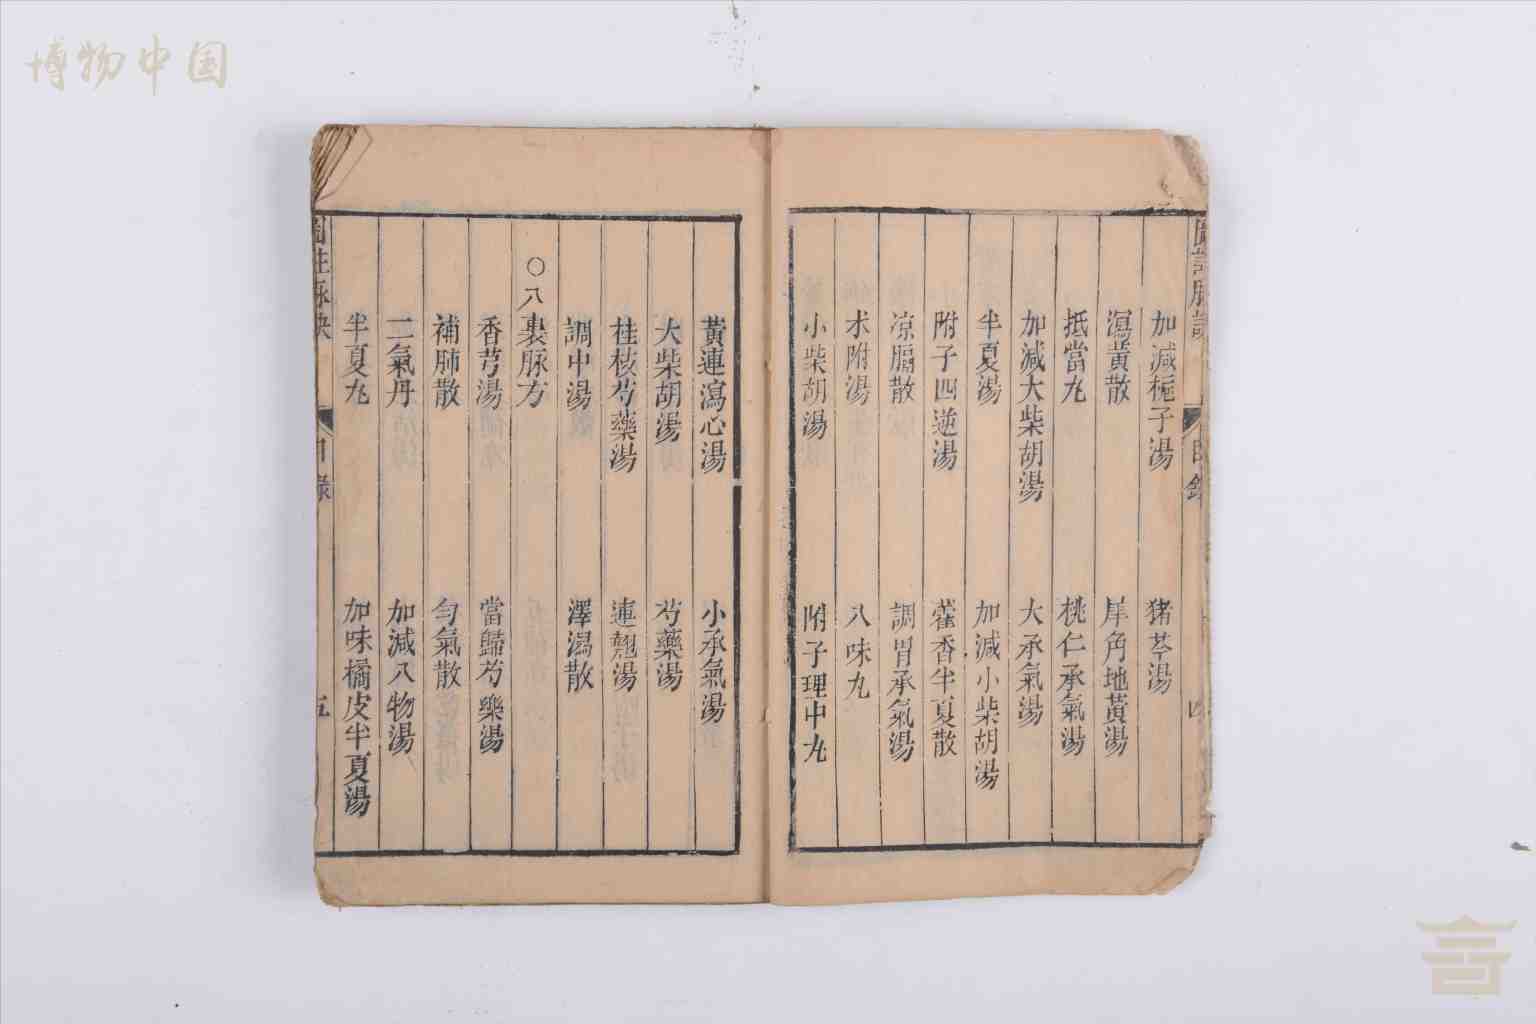 博物中国
加減梔子湯
猪苓湯
瀉黃散
犀角地黃湯
抵當丸
桃仁承氣湯
加減大柴胡湯
大承氣湯
半夏湯
加減小柴胡湯
附子四逆湯
藿香半夏散
凉膈散
調胃承氣湯
术附湯
八味丸
小柴胡湯
附子理中丸
黃連瀉心湯
小承氣湯
大柴胡湯
芍藥湯
桂枝芍藥湯
連翹湯
調中湯
澤瀉散
○八裏脉方
香芎湯
當歸芍藥湯
補肺散
勻氣散
二氣丹
加減八物湯
半夏丸
加味橘皮半夏湯
目錄
五